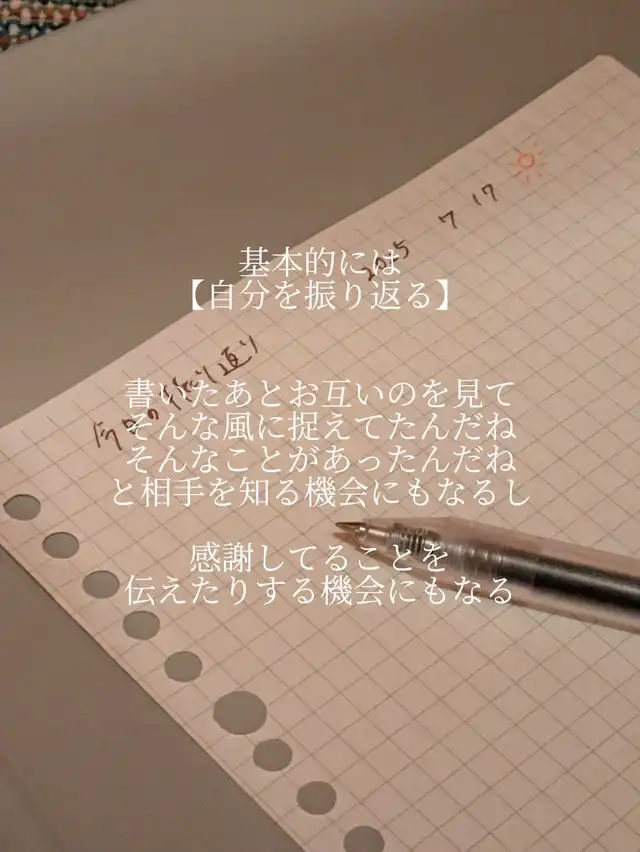 2025 7 17
基本的には
【自分を振り返る】
今日の振り返り
書いたあとお互いのを見て
そんな風に捉えてたんだね
そんなことがあったんだね
と相手を知る機会にもなるし
感謝してることを
伝えたりする機会にもなる